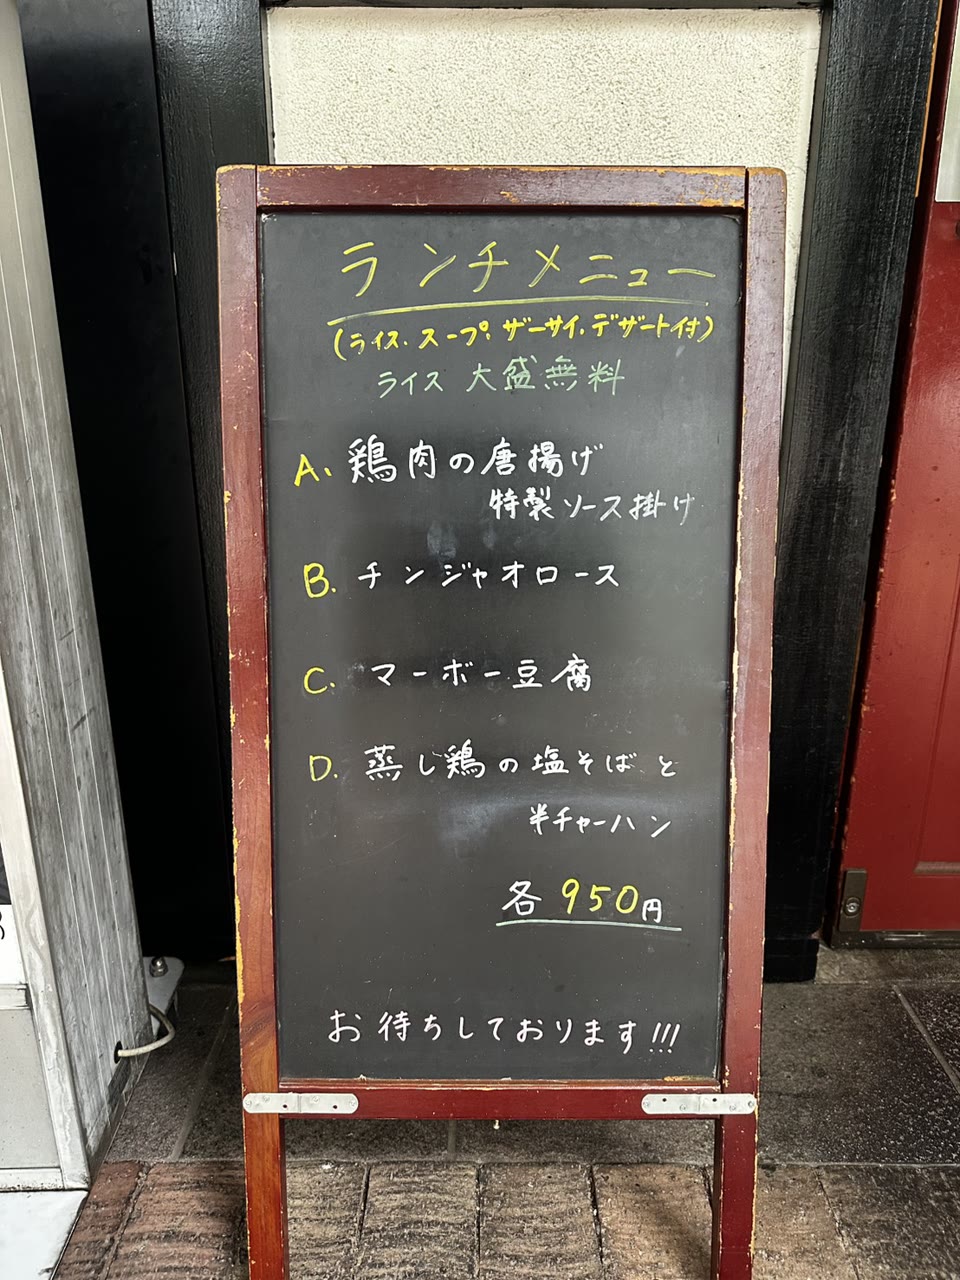 ランチメニュー
(ライス、スープ、ザーサイ、デザート付)
ライス 大盛無料
A. 鶏肉の唐揚げ
特製ソース掛け
B. チンジャオロース
C. マーボー豆腐
D. 蒸し鶏の塩そばと
半チャーハン
各 950円
お待ちしております!!!